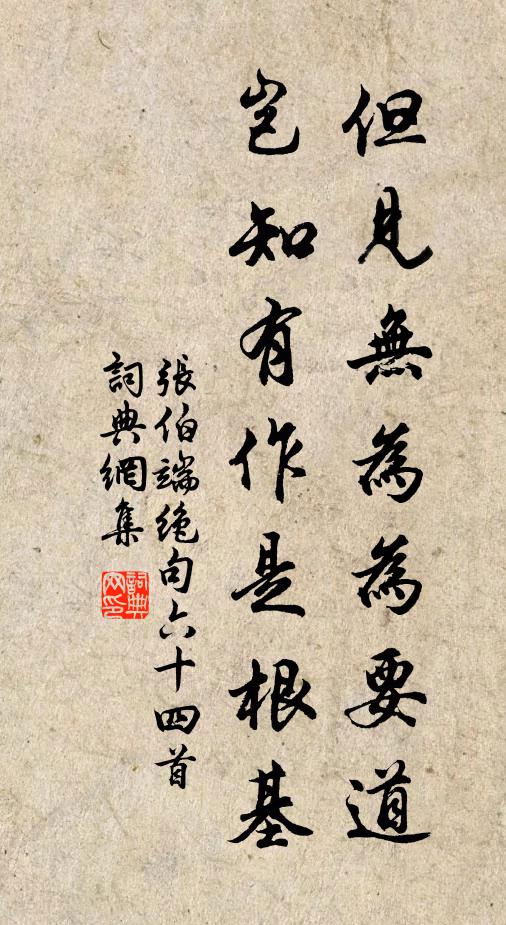 但見無為為要道
豈知有作是根基
張伯端絶句六十四首
詞典網集
詞典网印